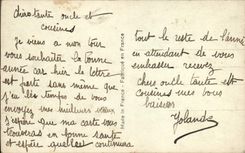 Chère tante oncle et
cousines
Je viens a mon tour
vous souhaiter la bonne
année car hier la lettre
est partie sans même que
j'ai le temps de vous
envoyer mes meilleurs
J'espère que ma carte vous
trouvera en bonne santé
et espère quelle continuera
Fabriqué en France
tout le reste de l'année
en attendant de vous
embrasser recevez
chers oncle tante et
cousines mes bons
baisers
Yolande